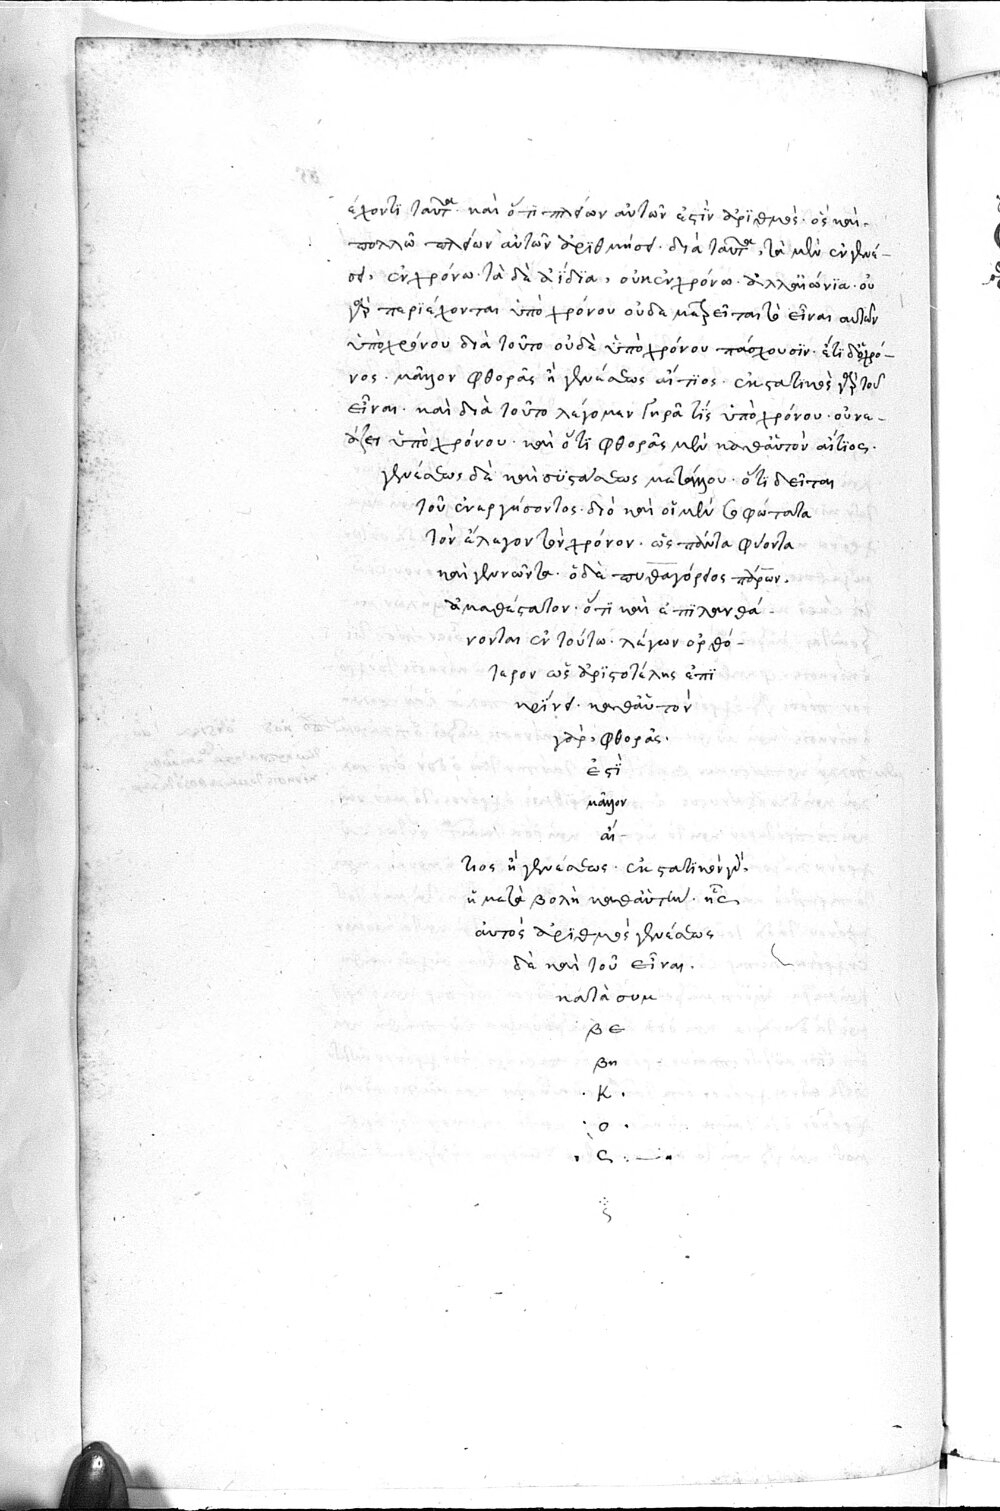 έχοντι ταῦτα· καὶ ὅτι πλείων αὐτῶν ἐστὶν ἀριθμὸς· ὃς καὶ
πολλῶ πλείων αὐτῶν ἀριθμήσει· διὰ ταῦτα, τὰ μὲν ἐν γενέ-
σει, ἐν χρόνω· τὰ δὲ ἀΐδια, οὐκ ἐν χρόνω· ἀλλ' αἰώνια· οὐ
γὰρ περιέχονται ὑπὸ χρόνου οὐδὲ μετρεῖται τὸ εἶναι αὐτῶν
ὑπὸ χρόνου διὰ τοῦτο οὐδὲ ὑπὸ χρόνου πάσχουσιν· ἔτι δὲ ὁ χρό-
νος· μᾶλλον φθορᾶς ἢ γενέσεως αἴτιος· ἐκστατικὸς γὰρ τοῦ
εἶναι· καὶ διὰ τοῦτο λέγομεν γηρᾶ τίς ὑπὸ χρόνου· οὐ νε-
άζει ὑπὸ χρόνου· καὶ ὅτι φθορᾶς μὲν καθ' αὑτὸν αἴτιος·
γενέσεως δὲ καὶ συστάσεως κατ' ἄλλου· ὅτι δεῖται
τοῦ ἐνεργήσοντος· διὸ καὶ οἱ μὲν σοφώτατα
τὸν ἔλεγον τὸν χρόνον· ὡς πάντα φύοντα
καὶ γεννῶντα· ὁ δὲ πυθαγόρειος πάρων·
ἀμαθέστατον· ὅτι καὶ ἐπιλανθά-
νονται ἐν τούτω· λέγων ὀρθό-
τερον ὡς ἀριστοτέλης ἐπι
κρίνει· καθ' αὑτὸν
γὰρ, φθορᾶς·
ἐστὶ
μᾶλλον
αἴ
τιος ἢ γενέσεως· ἐκστατικὸν γὰρ,
ἡ μεταβολὴ καθ' αὑτήν· ἧς
αὐτὸς ἀριθμὸς γενέσεως
δὲ καὶ τοῦ εἶναι·
κατὰ συμ
βε
βη
κ
ο
ς